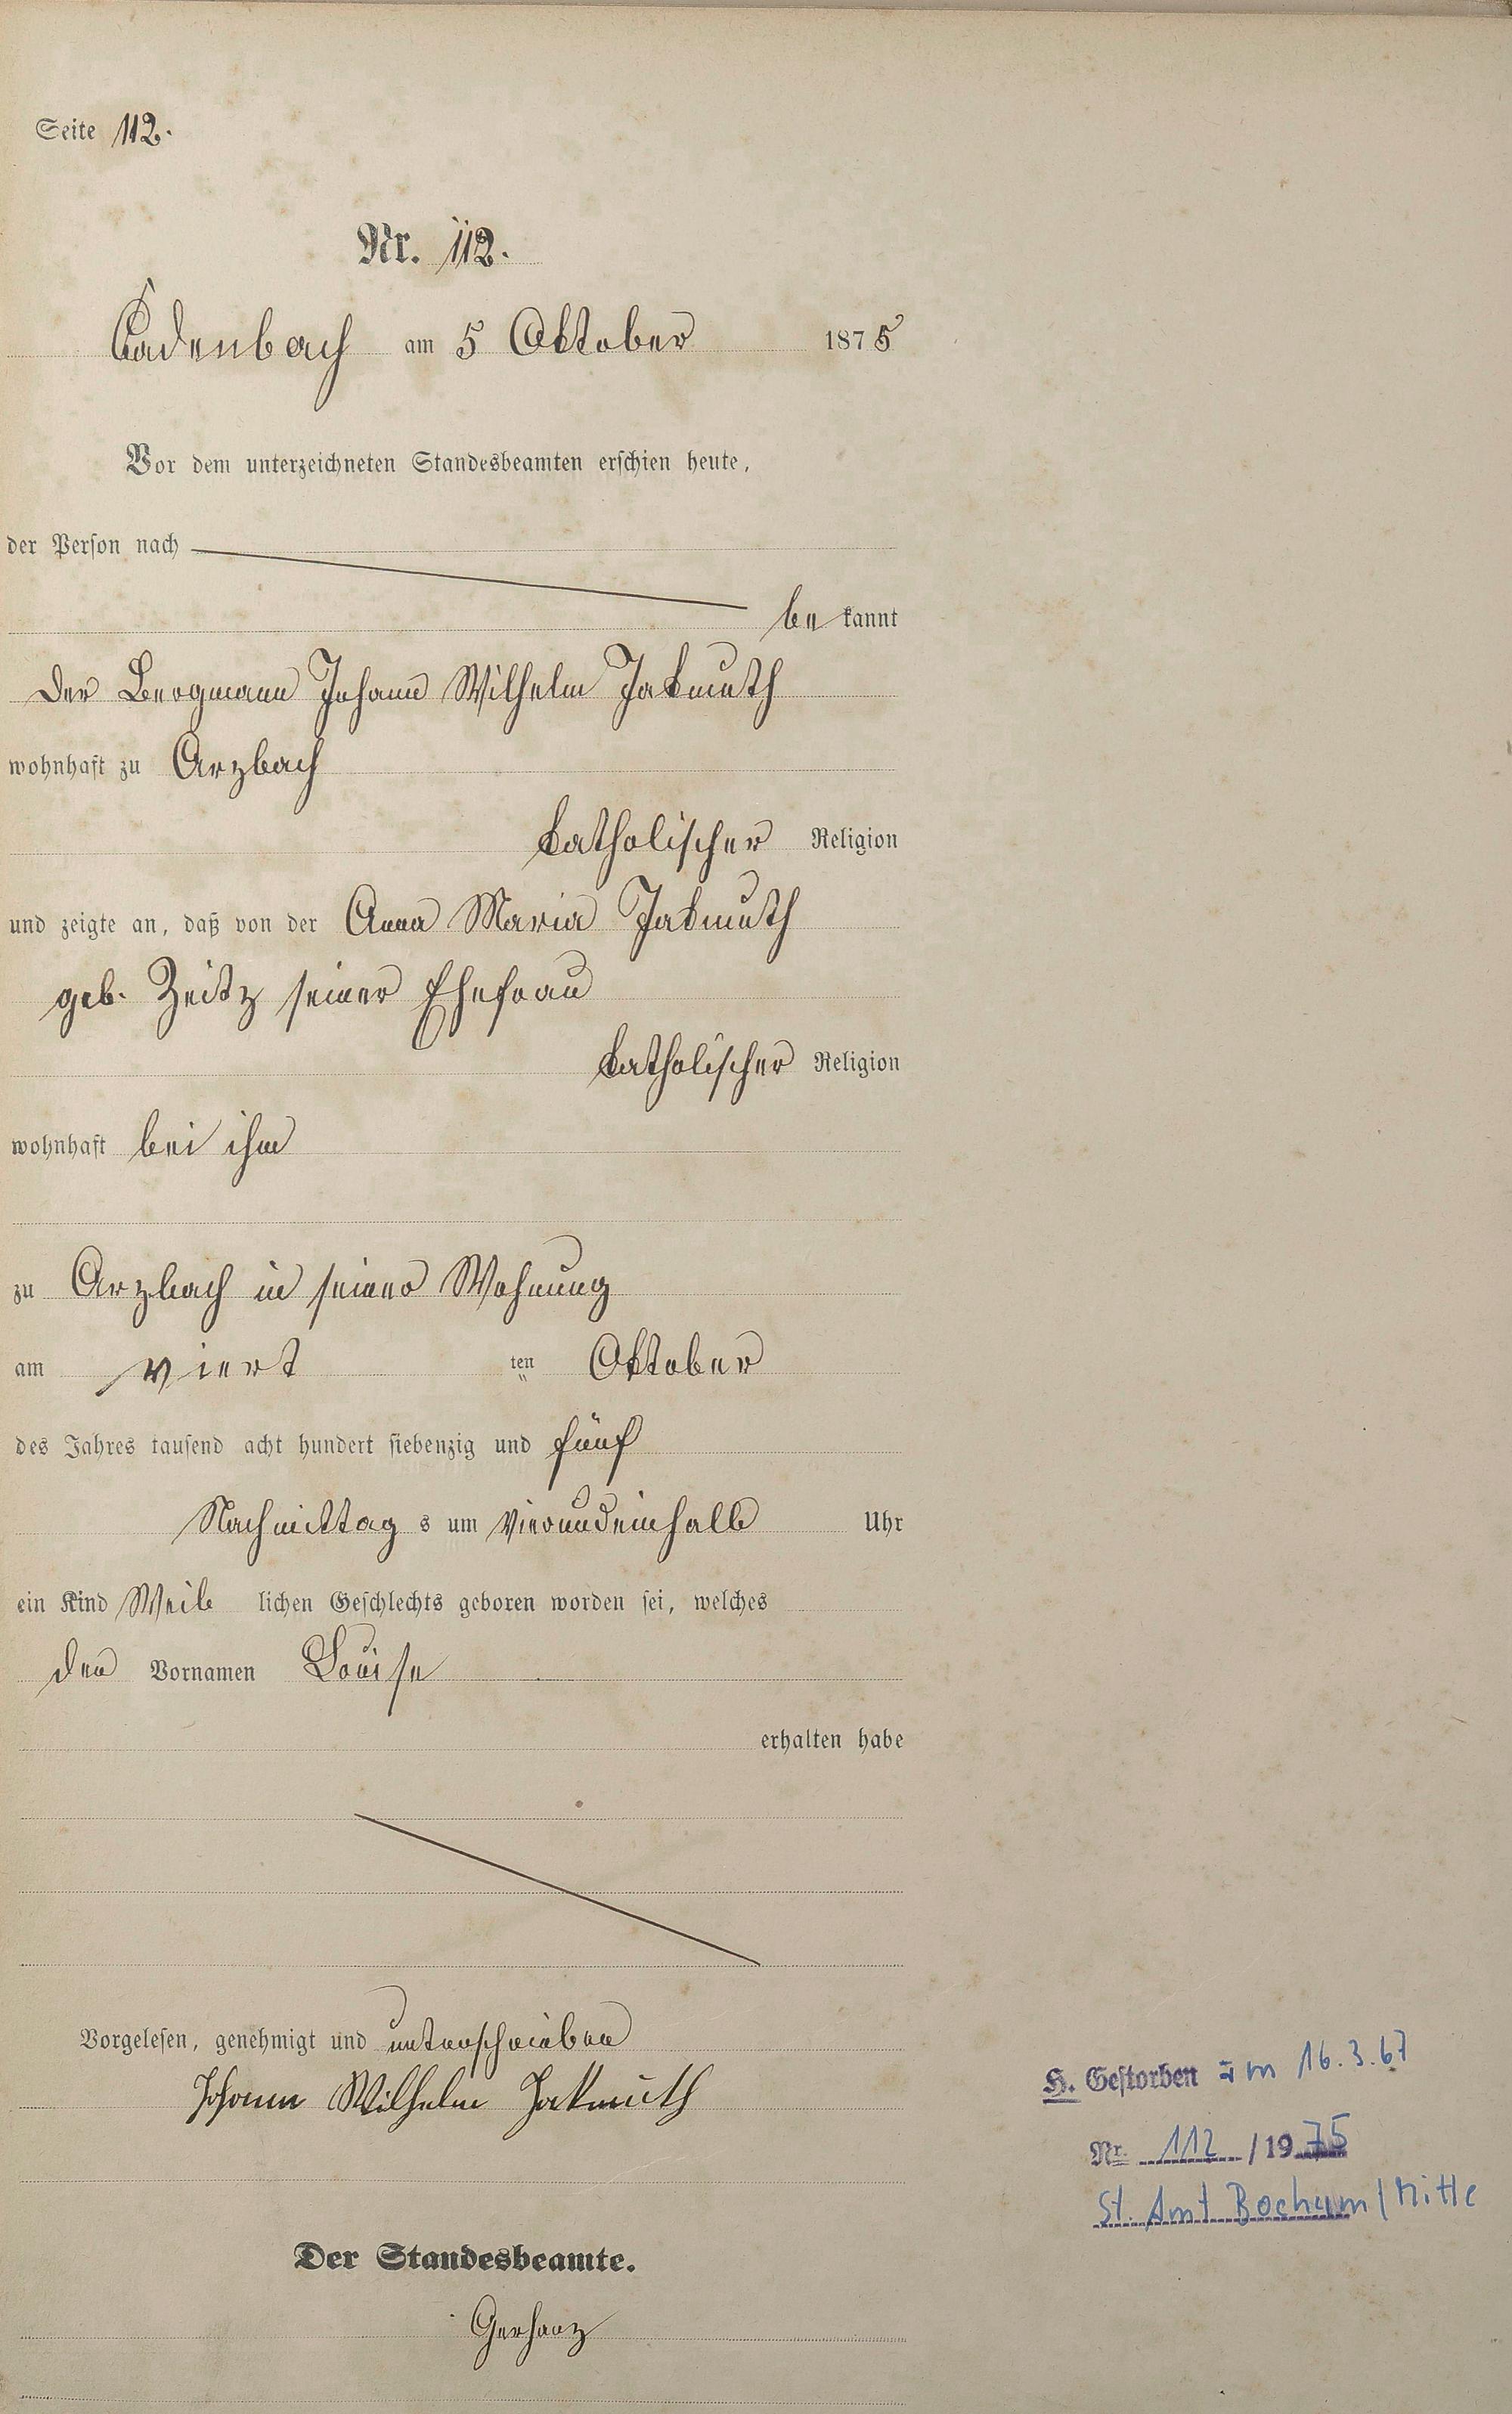 Seite 112.
Nr. 112.
Cadenbach am 5 Oktober 1875
Vor dem unterzeichneten Standesbeamten erschien heute,
der Person nach
be kannt
der Bergmann Johann Wilhelm Jakmuth
wohnhaft zu Arzbach
katholischer Religion
und zeigte an, daß von der Anna Maria Jakmuth
geb. Zeitz seiner Ehefrau
katholischer Religion
wohnhaft bei ihm
zu Arzbach in seiner Wohnung
am viert ten Oktober
des Jahres tausend acht hundert siebenzig und fünf
Nachmittag s um vierundeinhalb Uhr
ein Kind Weib lichen Geschlechts geboren worden sei, welches
den Vornamen Louise
erhalten habe
Vorgelesen, genehmigt und unterschrieben
Johann Wilhelm Jakmuth
Der Standesbeamte.
Gerharz
H. Gestorben am 16.3.67
Nr. 112 / 1975
St. Amt Bochum / Mitte